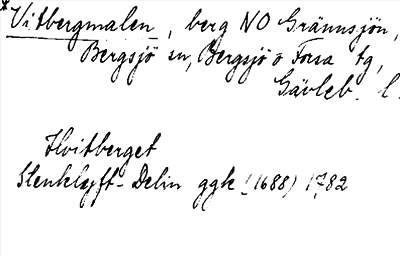 *Vitbergmalen, berg NO Grännsjön,
Bergsjö sn, Bergsjö o Forsa tg,
Gävleb. l.
Hvitberget
Stenklyft-Delin ggk (1688) 1782